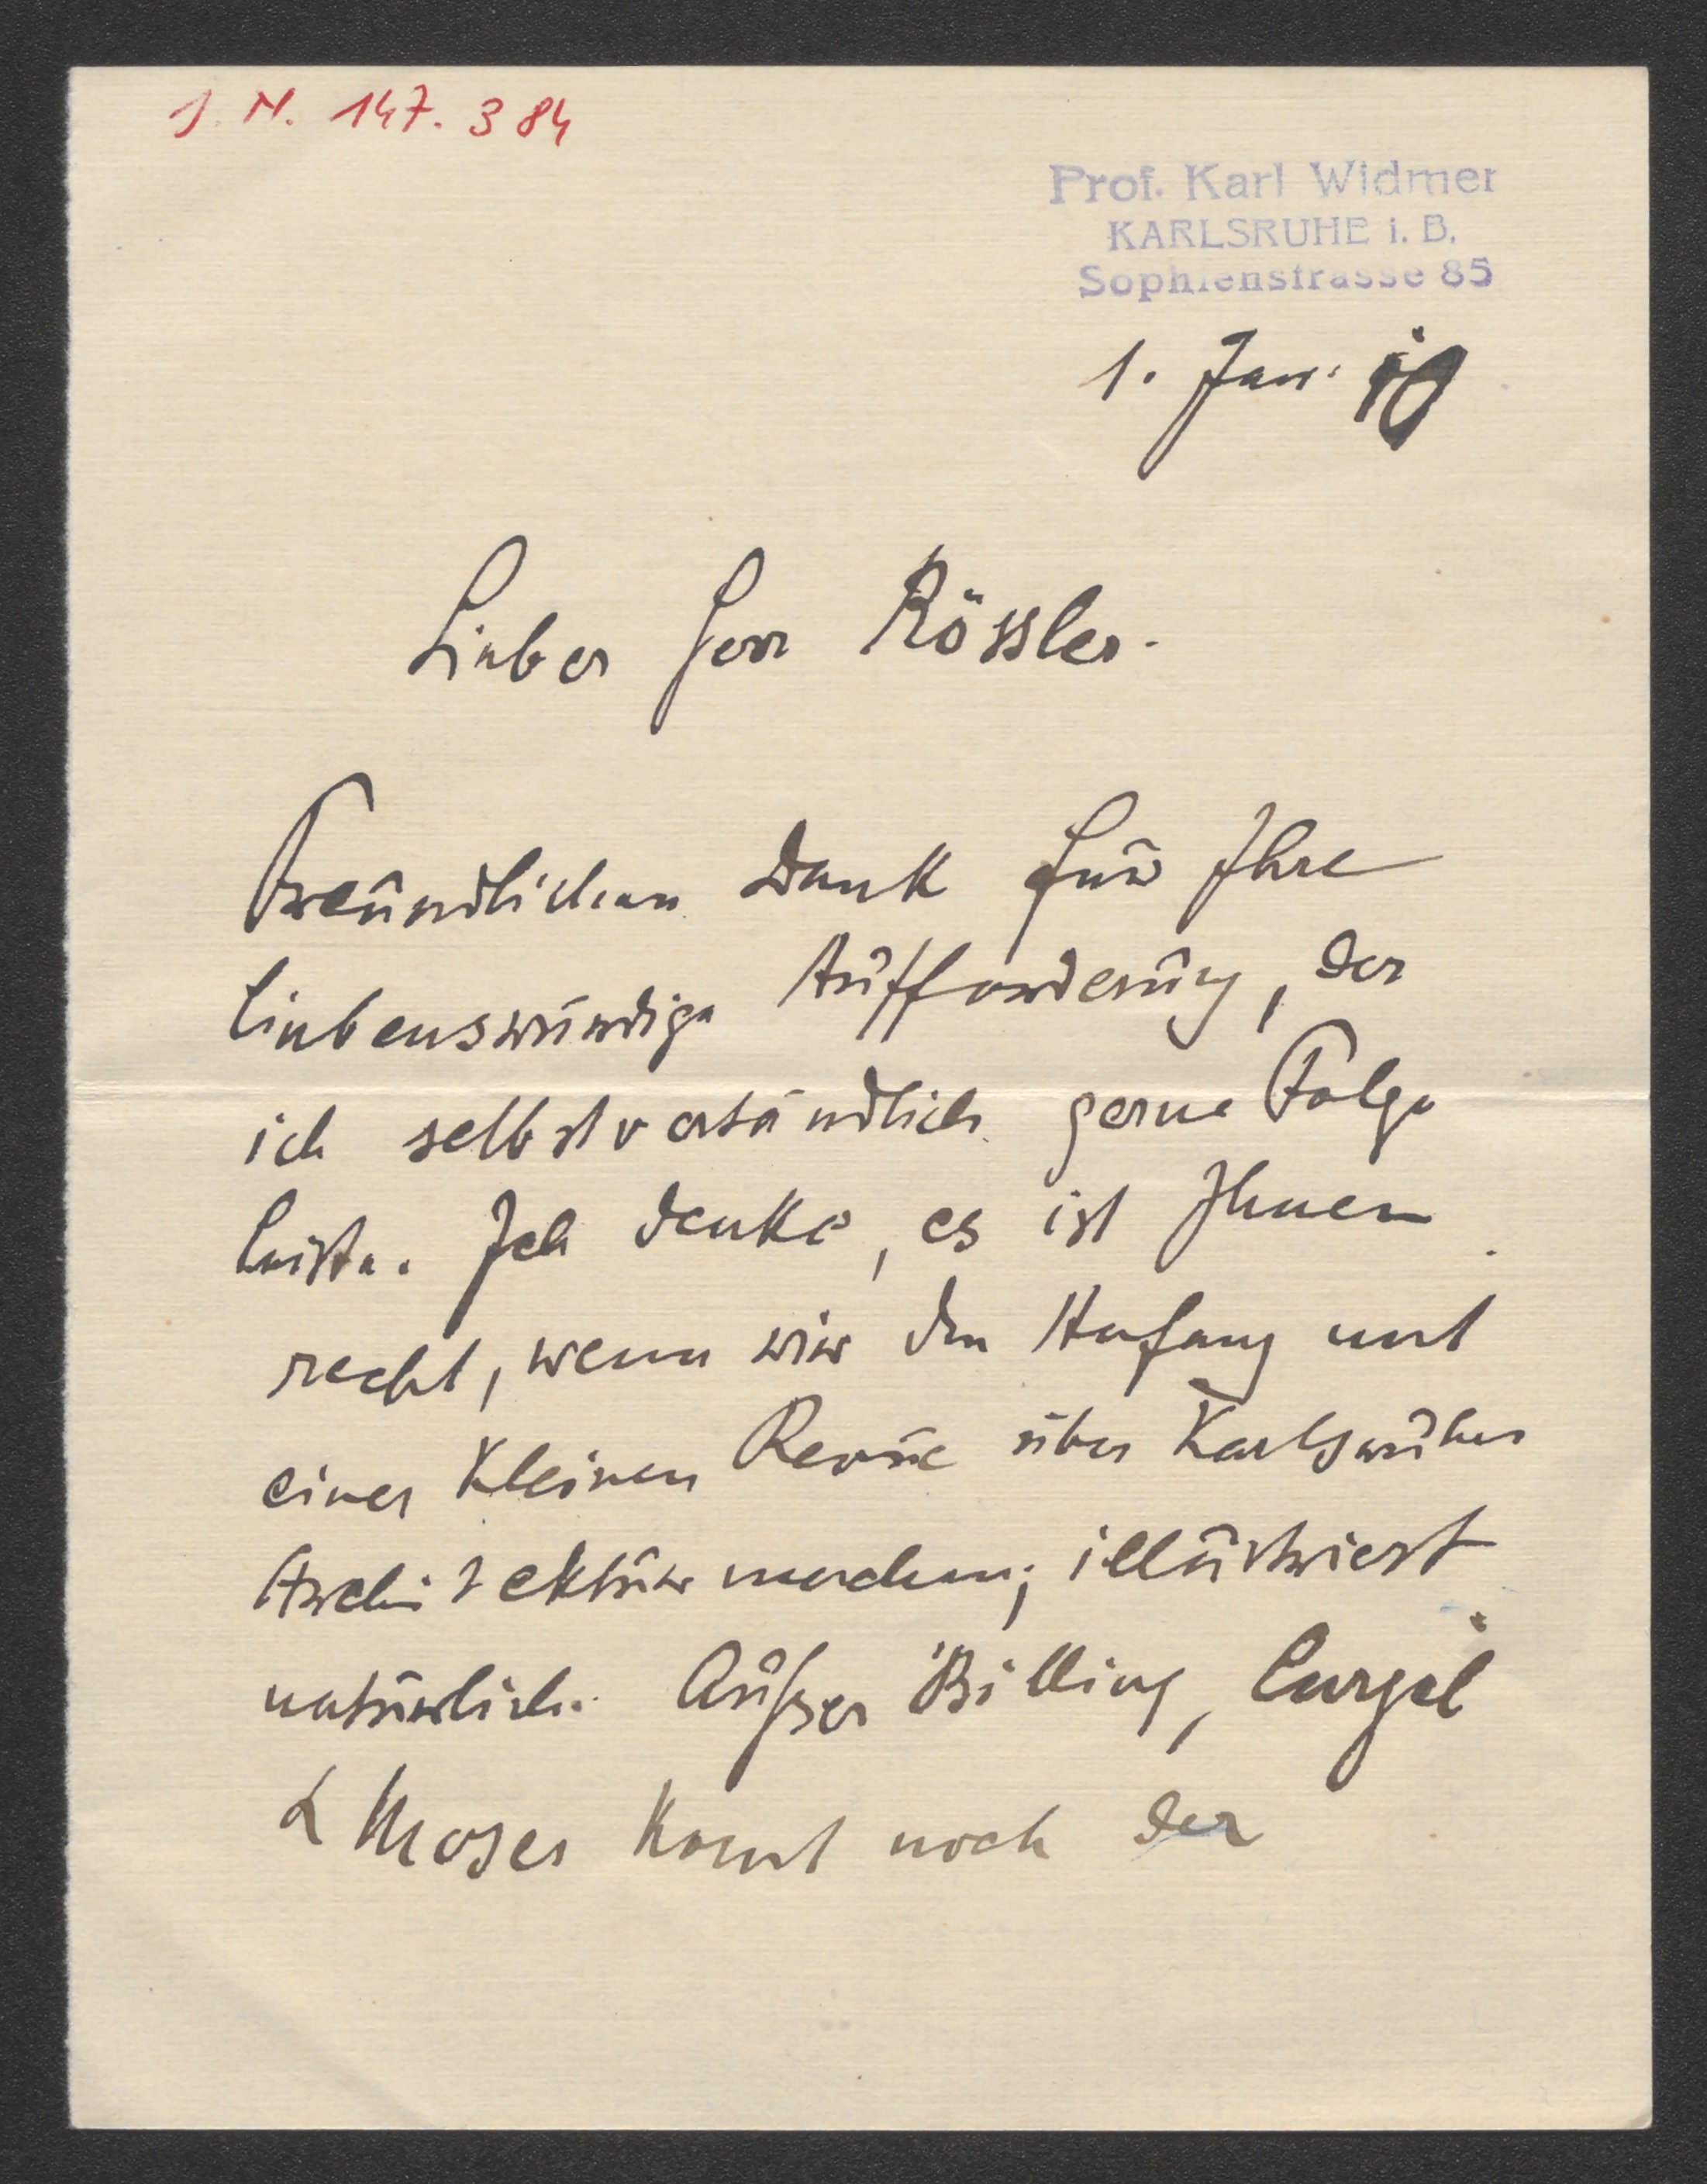 J. N. 147.384
Prof. Karl Widmer
KARLSRUHE i. B.
Sophienstrasse 85
1. Jan. 10
Lieber Herr Rössler.
Freundlichen Dank für Ihre
liebenswürdige Aufforderung, der
ich selbstverständlich gerne Folge
leiste. Ich denke, es ist Ihnen
recht, wenn wir den Anfang mit
einer kleinen Revue über Karlsruher
Architektur machen; illustriert
natürlich. Außer Billing, Curjel
& Moser komt noch der